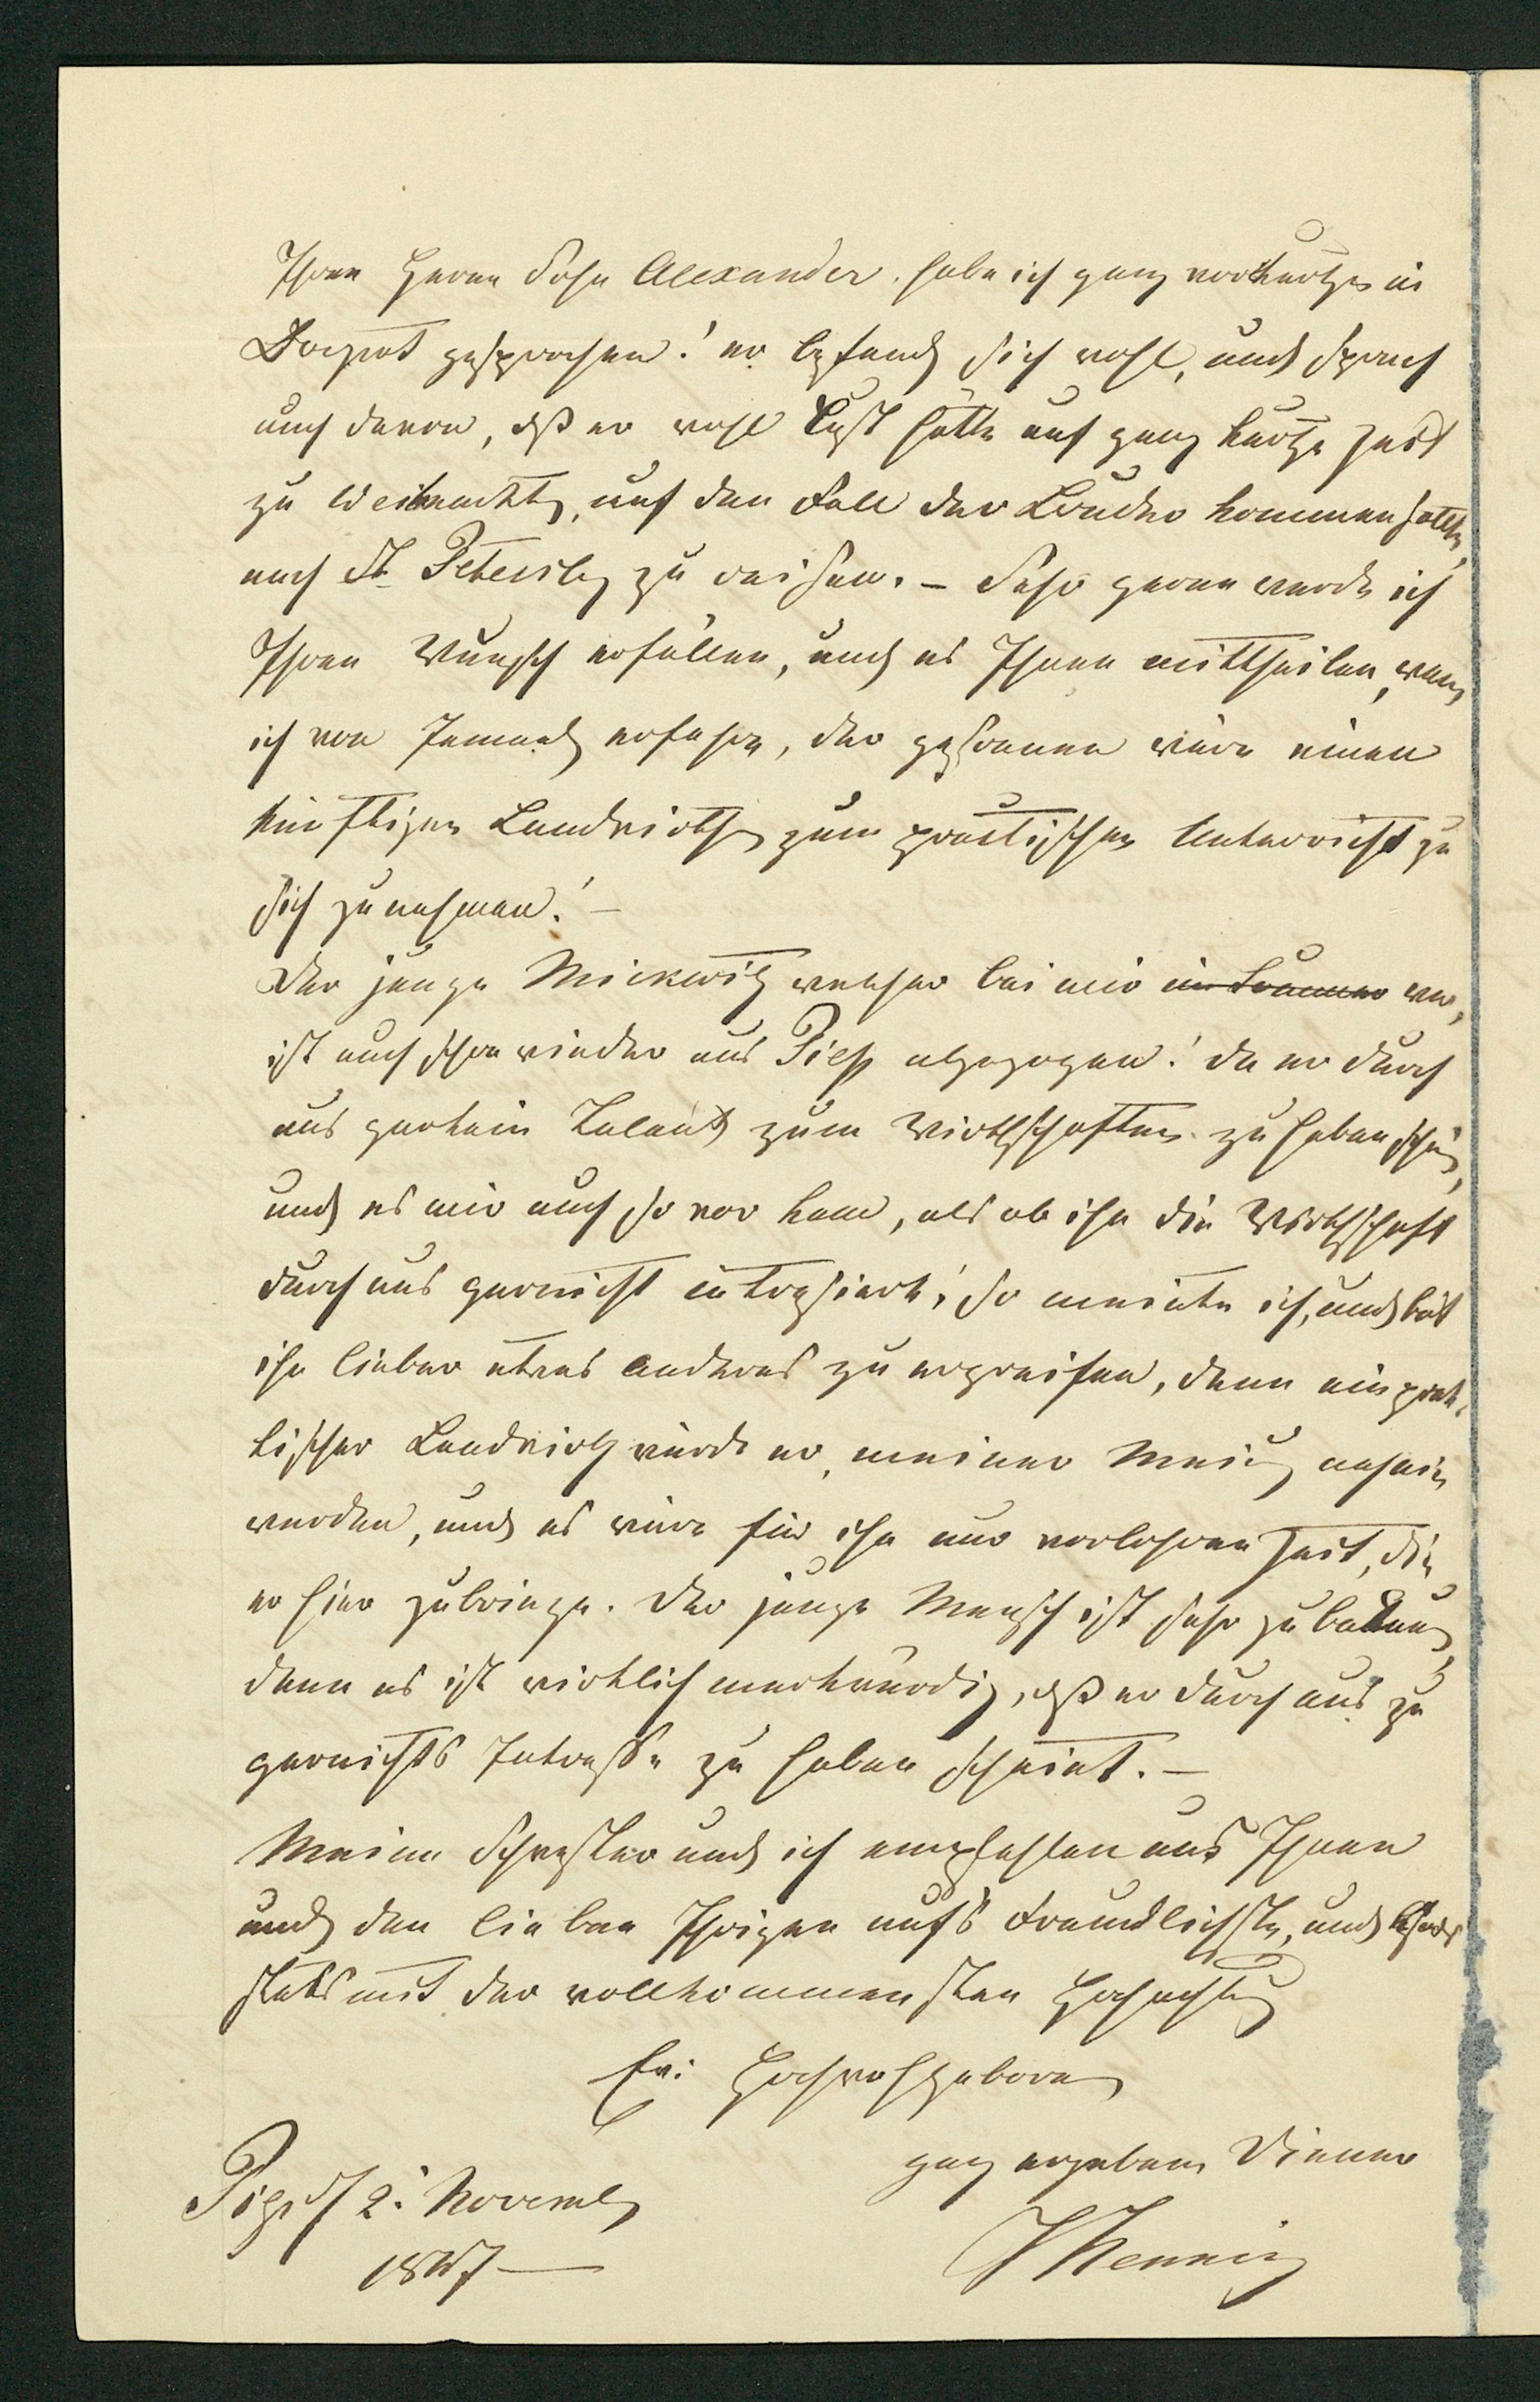 Ihren Herrn Sohn Alexander habe ich ganz vor kurtzen in
Dorpat gesprochen! er befand sich wohl, und sprach
auch davon, daß er wohl Lust hätte auf ganz kurtze Zeit
zu Weihnachten, auf den Fall der Bruder kommen sollte,
nach St. Petersbg zu reisen. – Sehr gerne werde ich
Ihren Wunsch erfüllen, und es Ihnen mittheilen, wenn
ich von Jemand erfahre, der gesonnen wäre einen
künftigen Landwirthen zum practischen Unterricht zu
sich zu nehmen! –
Der junge Mickwitz welcher bei mir im Sommer war,
ist auch schon wieder aus abgezogen! da er durch
aus gar kein Talent zum Wirthschaften zu haben schien,
und es mir auch so vor kam, als ob ihn die Wirthschaft
durchaus garnicht intressirte, so meinte ich, und bat
ihn lieber etwas anderes zu ergreifen, denn ein prak-
tischer Landwirth würde er, meiner Meinung nach nie
werden, und es wäre für ihn nur verlohrene Zeit, die
er hier zubringe. Der junge Mensch ist sehr zu bedauern,
denn es ist wirklich merkwürdig, daß er durchaus zu
garnichts Intresse zu haben scheint. –
Meine Schwester und ich empfehlen uns Ihnen
und den lieben Ihrigen auf's Freundlichste, und
stets mit der vollkommensten Hochachtung
Ew: Hochwohlgeboren
ganz ergebener Diener
2. Novemb
1847 –